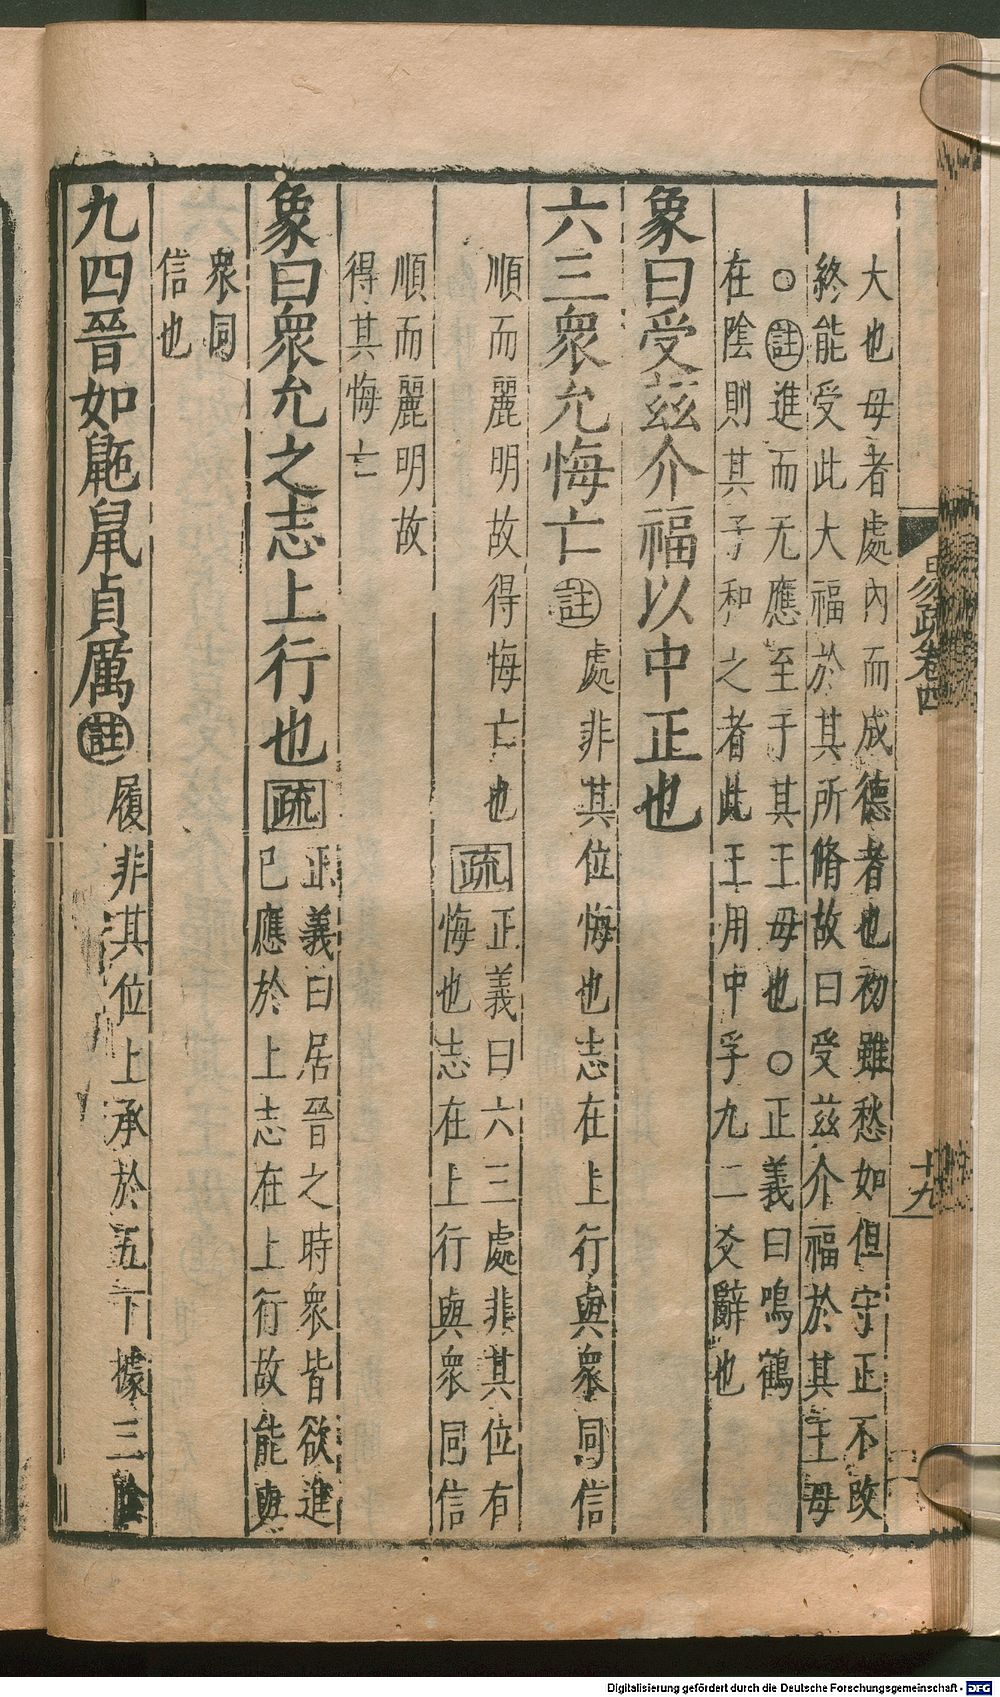 大也母者處內而成德者也初雖愁如但守正不改
終能受此大福於其所脩故曰受茲介福於其王母
○註進而无應至于其王母也○正義曰鳴鶴
在陰則其子和之者此王用中孚九二爻辭也
象曰受茲介福以中正也
六三衆允悔亡註處非其位悔也志在上行與衆同信
順而麗明故得悔亡也疏正義曰六三處非其位有
悔也志在上行與衆同信
順而麗明故
得其悔亡
象曰衆允之志上行也疏正義曰居晉之時衆皆欲進
已應於上志在上行故能與
衆同
信也
九四晉如鼫鼠貞厲註履非其位上承於五下據三陰
易疏卷四
十九
Digitalisierung gefördert durch die Deutsche Forschungsgemeinschaft - DFG